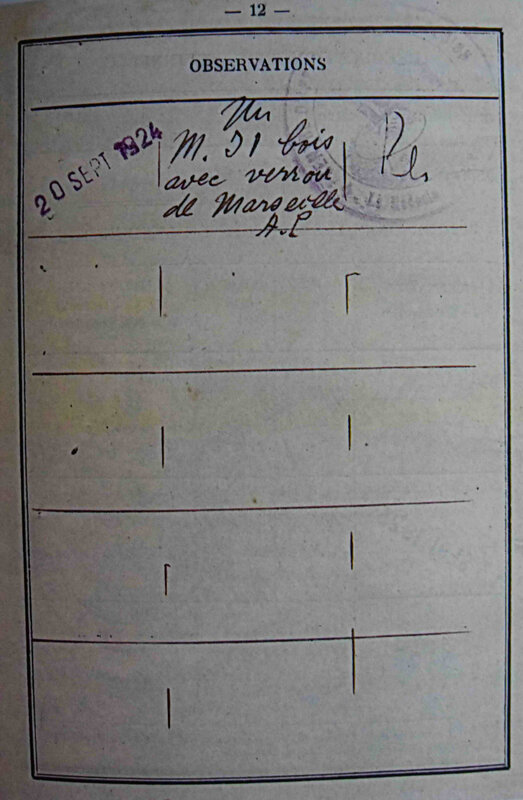 — 12 —
OBSERVATIONS
20 SEPT 1924
Un
M. 51 bois
avec verrou
de Marseille
A.P